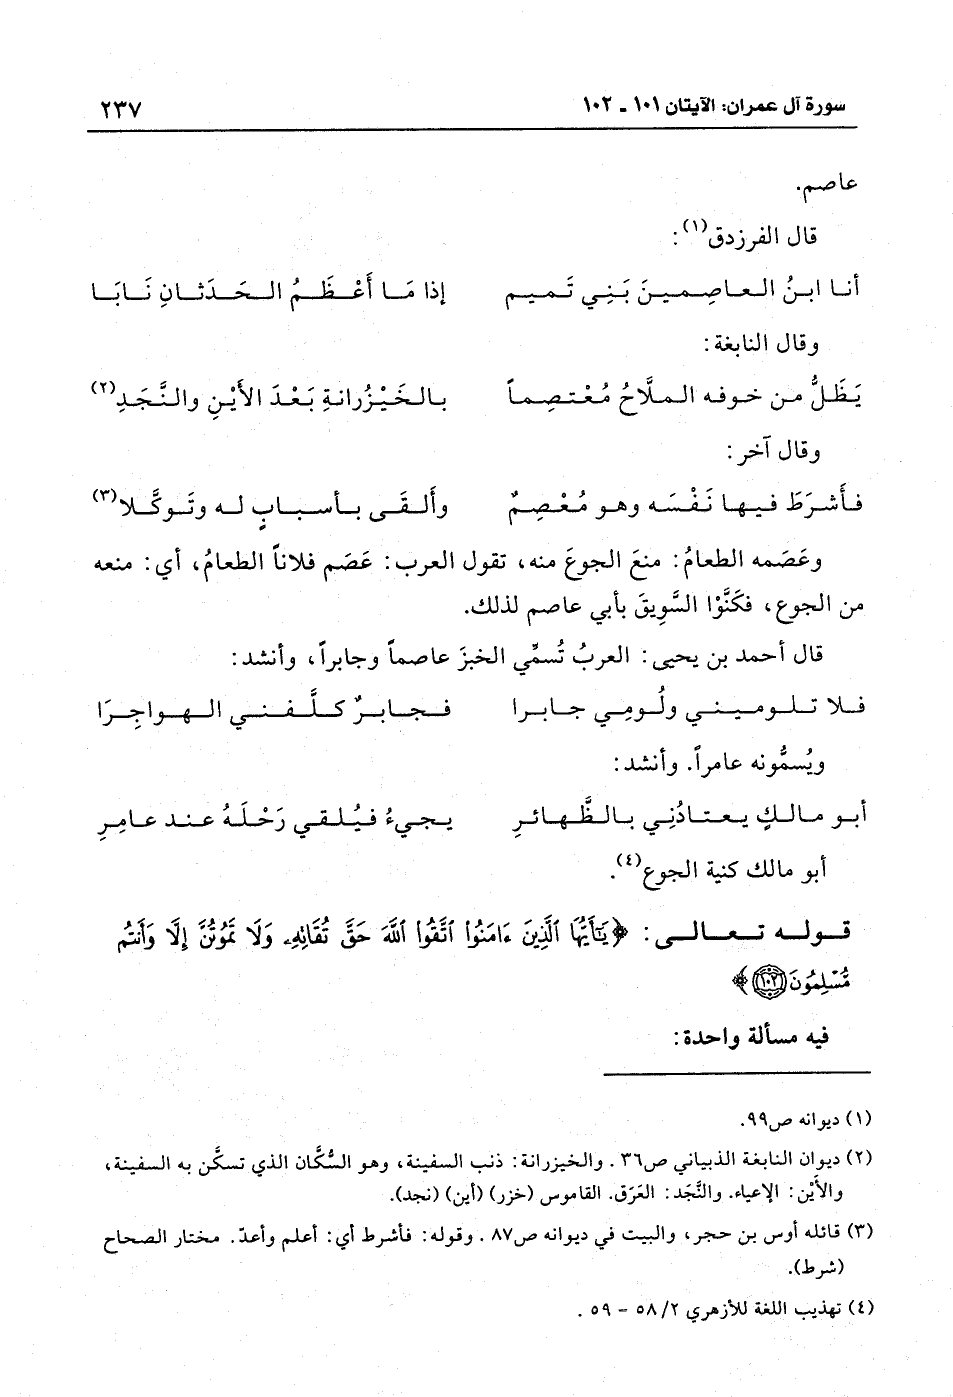 سورة آل عمران: الآيتان ١٠١ ـ ١٠٢ ٢٣٧
عاصم.
قال الفرزدق(١):
أنا ابنُ العاصِمينَ بَنِي تَميم إذا مَا أَعْظَمُ الحَدَثانِ نَابَا
وقال النابغة:
يَظَلُّ من خوفه الملَّاحُ مُعْتصِماً بالخَيْزُرانةِ بَعْدَ الأَيْنِ والنَّجَدِ(٢)
وقال آخر:
فأَشرَطَ فيها نَفْسَه وهو مُعْصِمٌ وأَلقَى بأسبابٍ له وتَوكَّلا(٣)
وعَصَمه الطعامُ: منعَ الجوعَ منه، تقول العرب: عَصَم فلاناً الطعامُ، أي: منعه
من الجوع، فكَنَّوْا السَّوِيقَ بأبي عاصم لذلك.
قال أحمد بن يحيى: العربُ تُسمِّي الخبزَ عاصماً وجابراً، وأنشد:
فلا تلوميني ولُومِي جابرا فجابرٌ كلَّفني الهواجِرَا
ويُسمُّونه عامراً. وأنشد:
أبو مالكٍ يعتادُنِي بالظَّهائرِ يجيءُ فيُلقي رَحْلَهُ عند عامِرِ
أبو مالك كنية الجوع(٤).
قوله تعالى: ﴿يَٰٓأَيُّهَا ٱلَّذِينَ ءَامَنُوا۟ ٱتَّقُوا۟ ٱللَّهَ حَقَّ تُقَائِهِۦ وَلَا تَمُوتُنَّ إِلَّا وَأَنتُم
مُّسْلِمُونَ ١٠٢﴾
فيه مسألة واحدة:
(١) ديوانه ص٩٩.
(٢) ديوان النابغة الذبياني ص٣٦. والخيزرانة: ذنب السفينة، وهو السُّكَّان الذي تسكَّن به السفينة،
والأَيْن: الإعياء. والنَّجَد: العَرَق. القاموس (خزر) (أين) (نجد).
(٣) قائله أوس بن حجر، والبيت في ديوانه ص٨٧. وقوله: فأشرط أي: أعلم وأعدّ. مختار الصحاح
(شرط).
(٤) تهذيب اللغة للأزهري ٥٨/٢ - ٥٩.